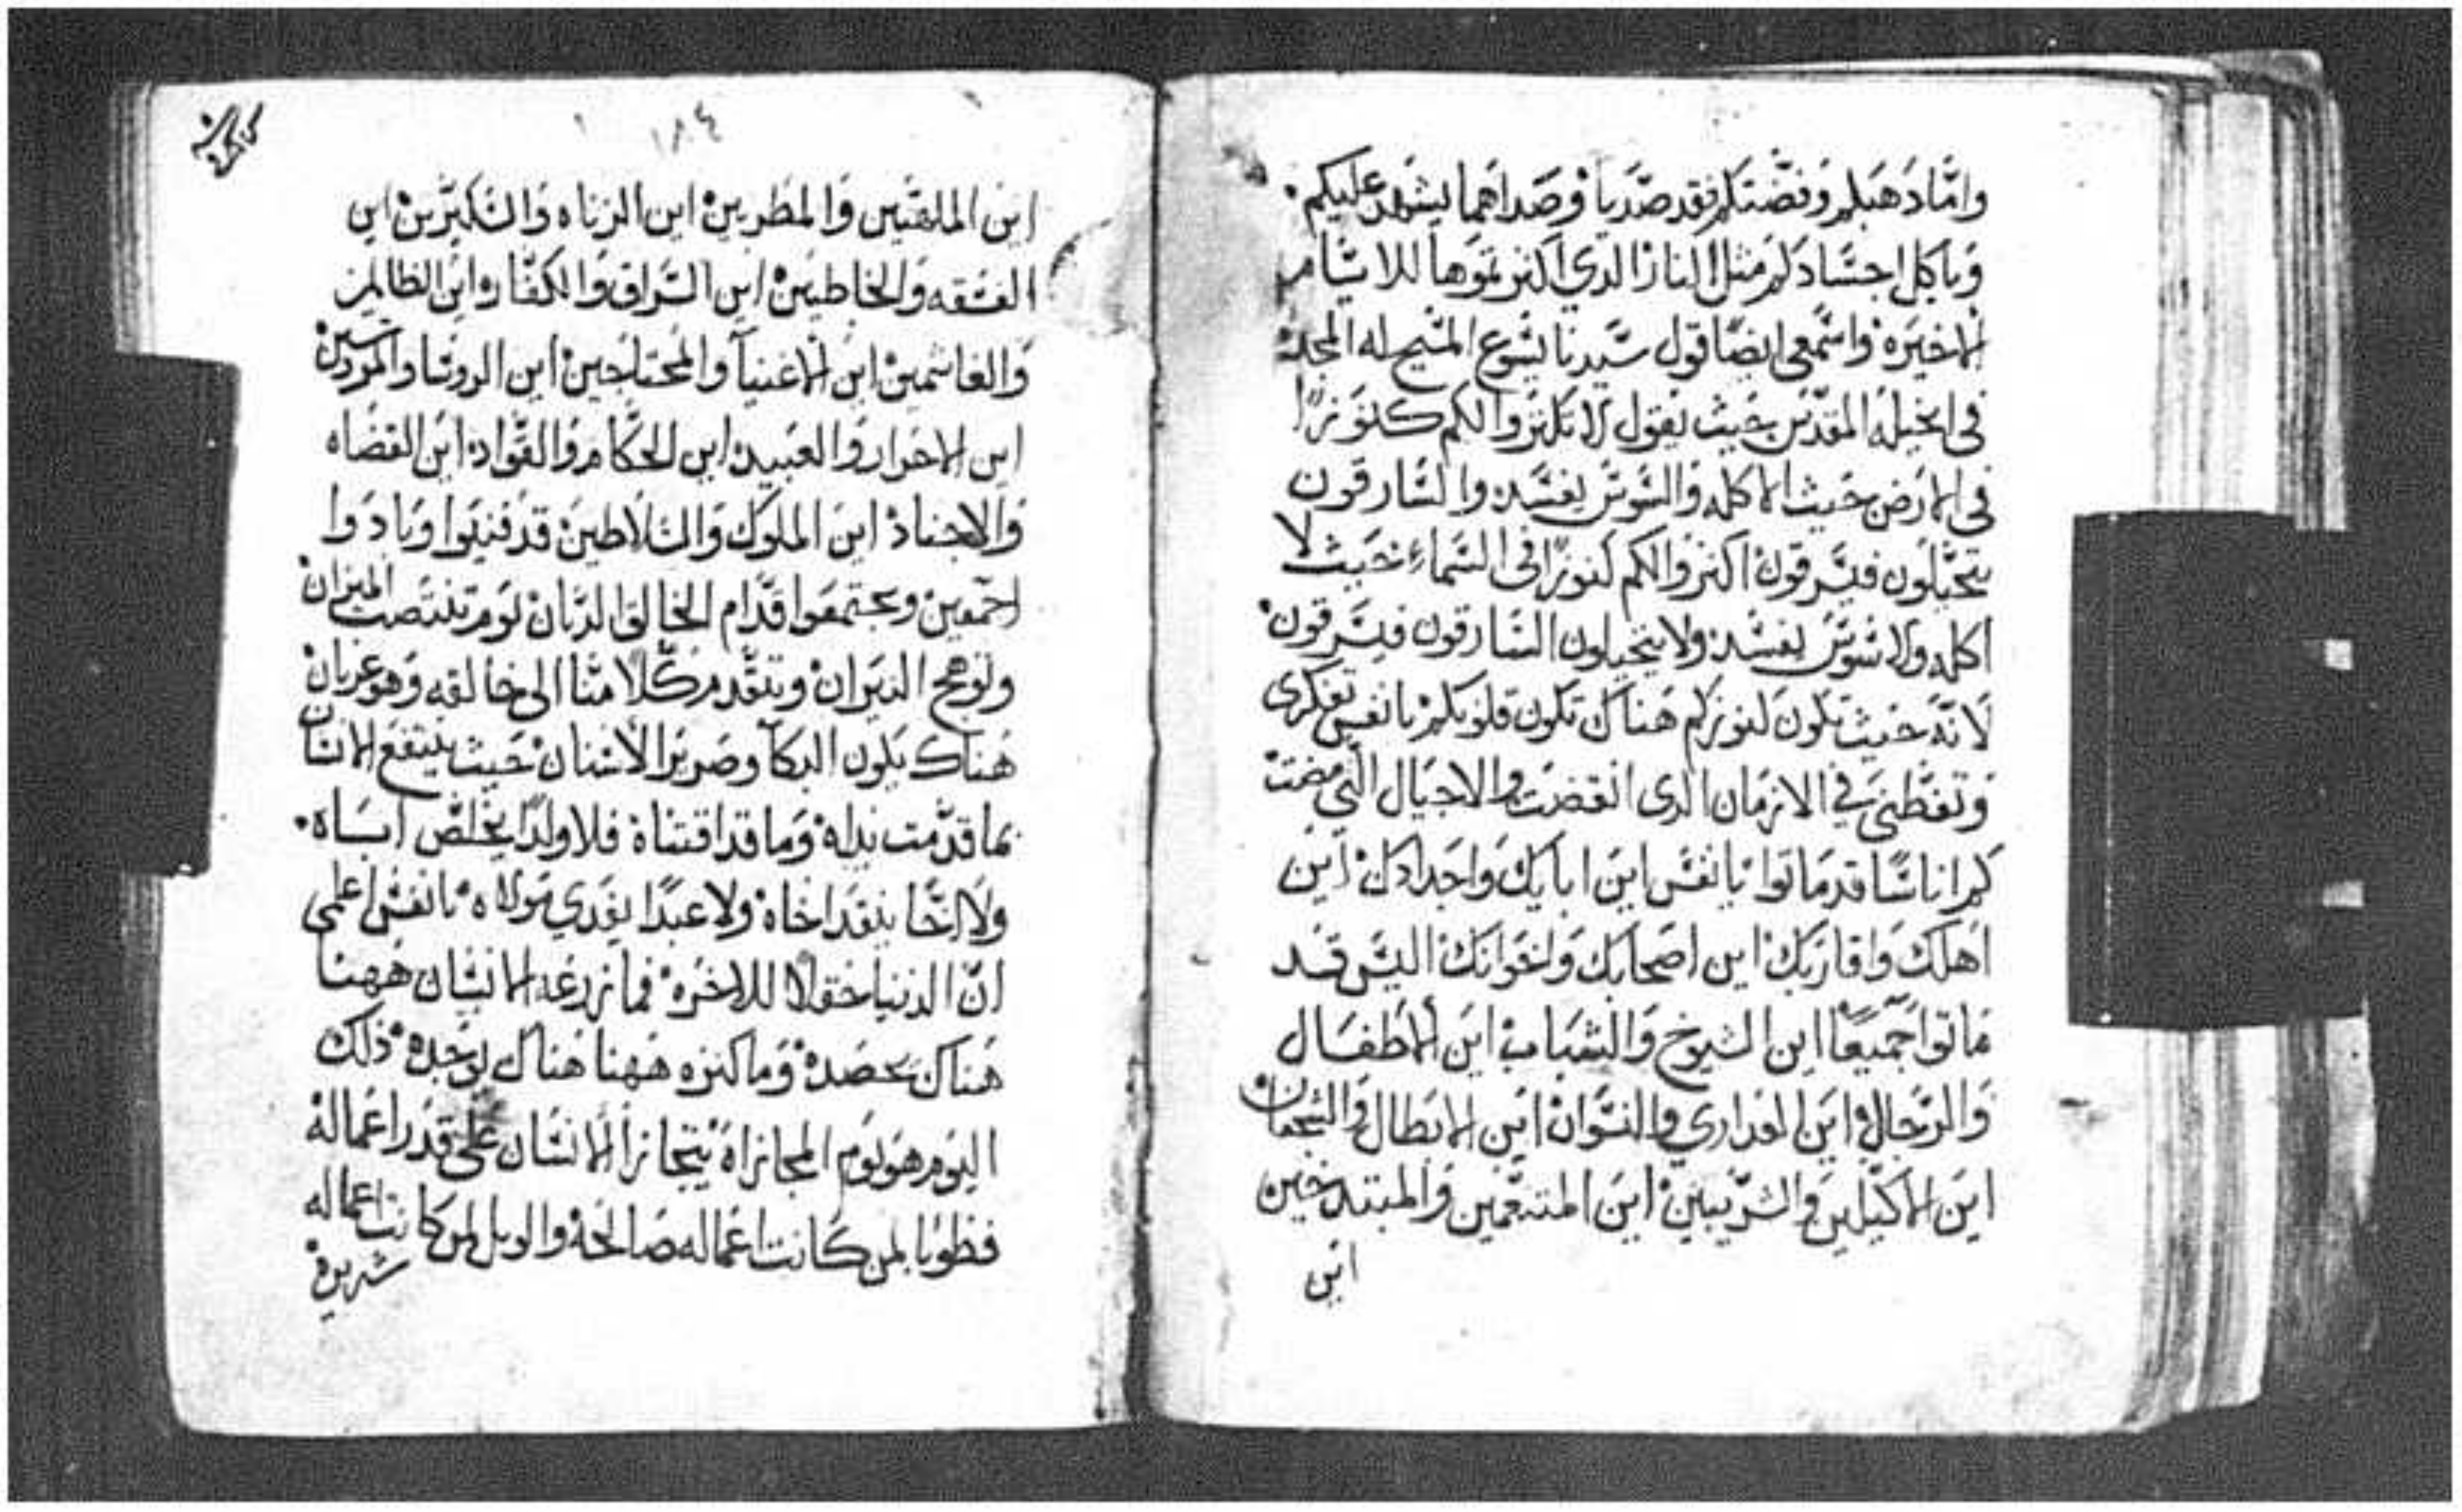 وامّا دهبكم وفضّتكم فقد صدّيا وصداهما يشهد عليكم.
وياكل اجسّادكم مثل النار الدي اكنزتموها للايّام
الاخيره واسمعي ايضًا قول سّيدنا يسّوع المسّيح له المجد
في انجيله المقدّس حيث يقول لا تكنزوا لكم كنوزًا
في الارض حيث الاكله والسّوس يفسّد والسّارقون
يتحيّلون فيسّرقون اكنزوا لكم كنوزًا في السّماء حيث لا
اكله ولا سّوس يفسّد ولا يتحيلون السّارقون فيسّرقون
لانّه حيث تكون كنوزكم هناك تكون قلوبكم يا نفس تفكري
وتفطّني في الازمان الدى انقضت والاجيال التي مضت
كم اناسًّا قد ماتوا يا نفس اين ابايك واجدادك اين
اهلك واقاربك اين اصحابك واخوانك اليس قد
ماتوا جميعًا اين الشيوخ والشباب اين الاطفال
والرّجال اين العداري والنسّوان اين الابطال والشجعان
اين الاكيلين والشرّيبين اين المتنعّمين والمبتدخين
اين
١٨٤
اين الملفّتين والمطربين اين الزناه والمتكبّرين اين
الفسّقه والخاطيين اين السّراق والكفّار اين الظالمين
والغاشمين اين الاغنيآ والمحتاجين اين الروسّا والمروسّين
اين الاحرار والعبيد اين الحكّام والقوّاد اين القضاه
والاجناد اين الملوك والسّلاطين قد فنيوا وبادوا
اجمعين ويجتمعوا قدّام الخالق الديّان يوم تنتصب الميزان
وتوهج النيران ويتقدّم كلًا منّا الى خالقه وهو عريان
هناك يكون البكآ وصرير الاسّنان حيث ينتفع الانسّان
بما قدّمت يداه وما قد اقتناه فلا ولدًا يخلّص اباه.
ولا اخًا ينقد اخاه ولا عبدًا يفدي مولاه يا نفس اعلمي
انّ الدنيا حقلًا للاخره فما زرعه الانسّان ههنا
هناك يحصده وما كنزه ههنا هناك يوجده ذلك
اليوم هو يوم المجازاه يتجازا الانسّان على قدر اعماله
فطوبا لمن كانت اعماله صالحه والويل لمن كانت اعماله
شريره